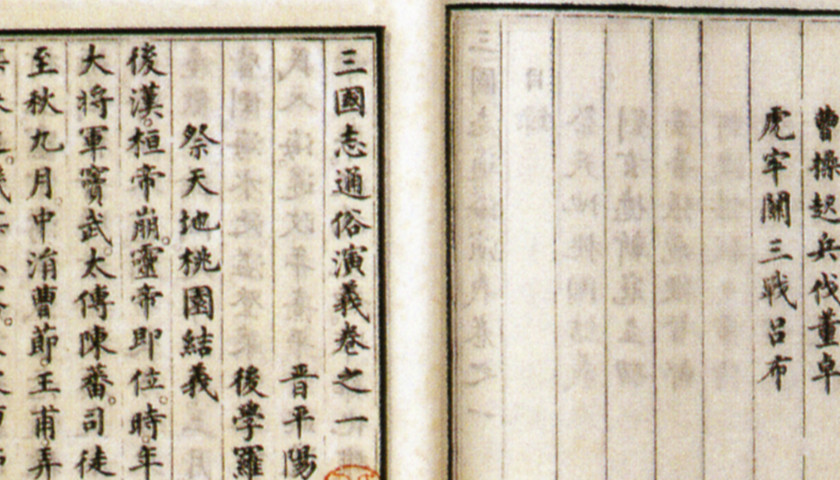 曹操起兵伐董卓
虎牢關三戰呂布
三國志通俗演義卷之一
晉平陽
後學羅
祭天地桃園結義
後漢桓帝崩靈帝即位時年
大將軍竇武太傅陳蕃司徒
至秋九月中涓曹節王甫弄